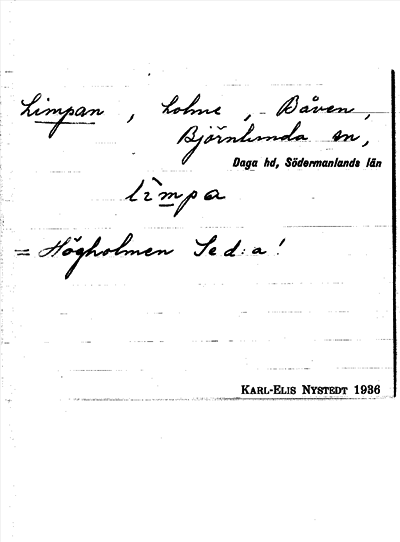 Limpan, holme, Båven,
Björnlunda sn,
Daga hd, Södermanlands län
limpa
= Högholmen Se d:a!
KARL-ELIS NYSTEDT 1936